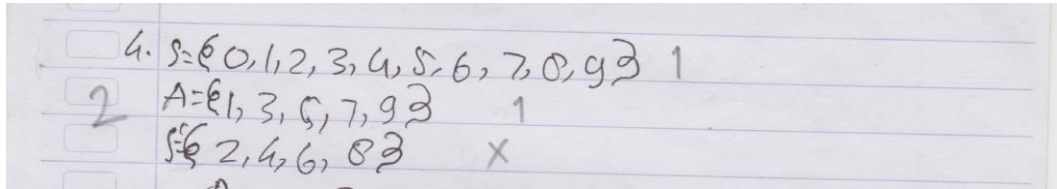 4. S={0,1,2,3,4,5,6,7,8,9} 1
2 A={1,3,5,7,9} 1
S={2,4,6,8} x